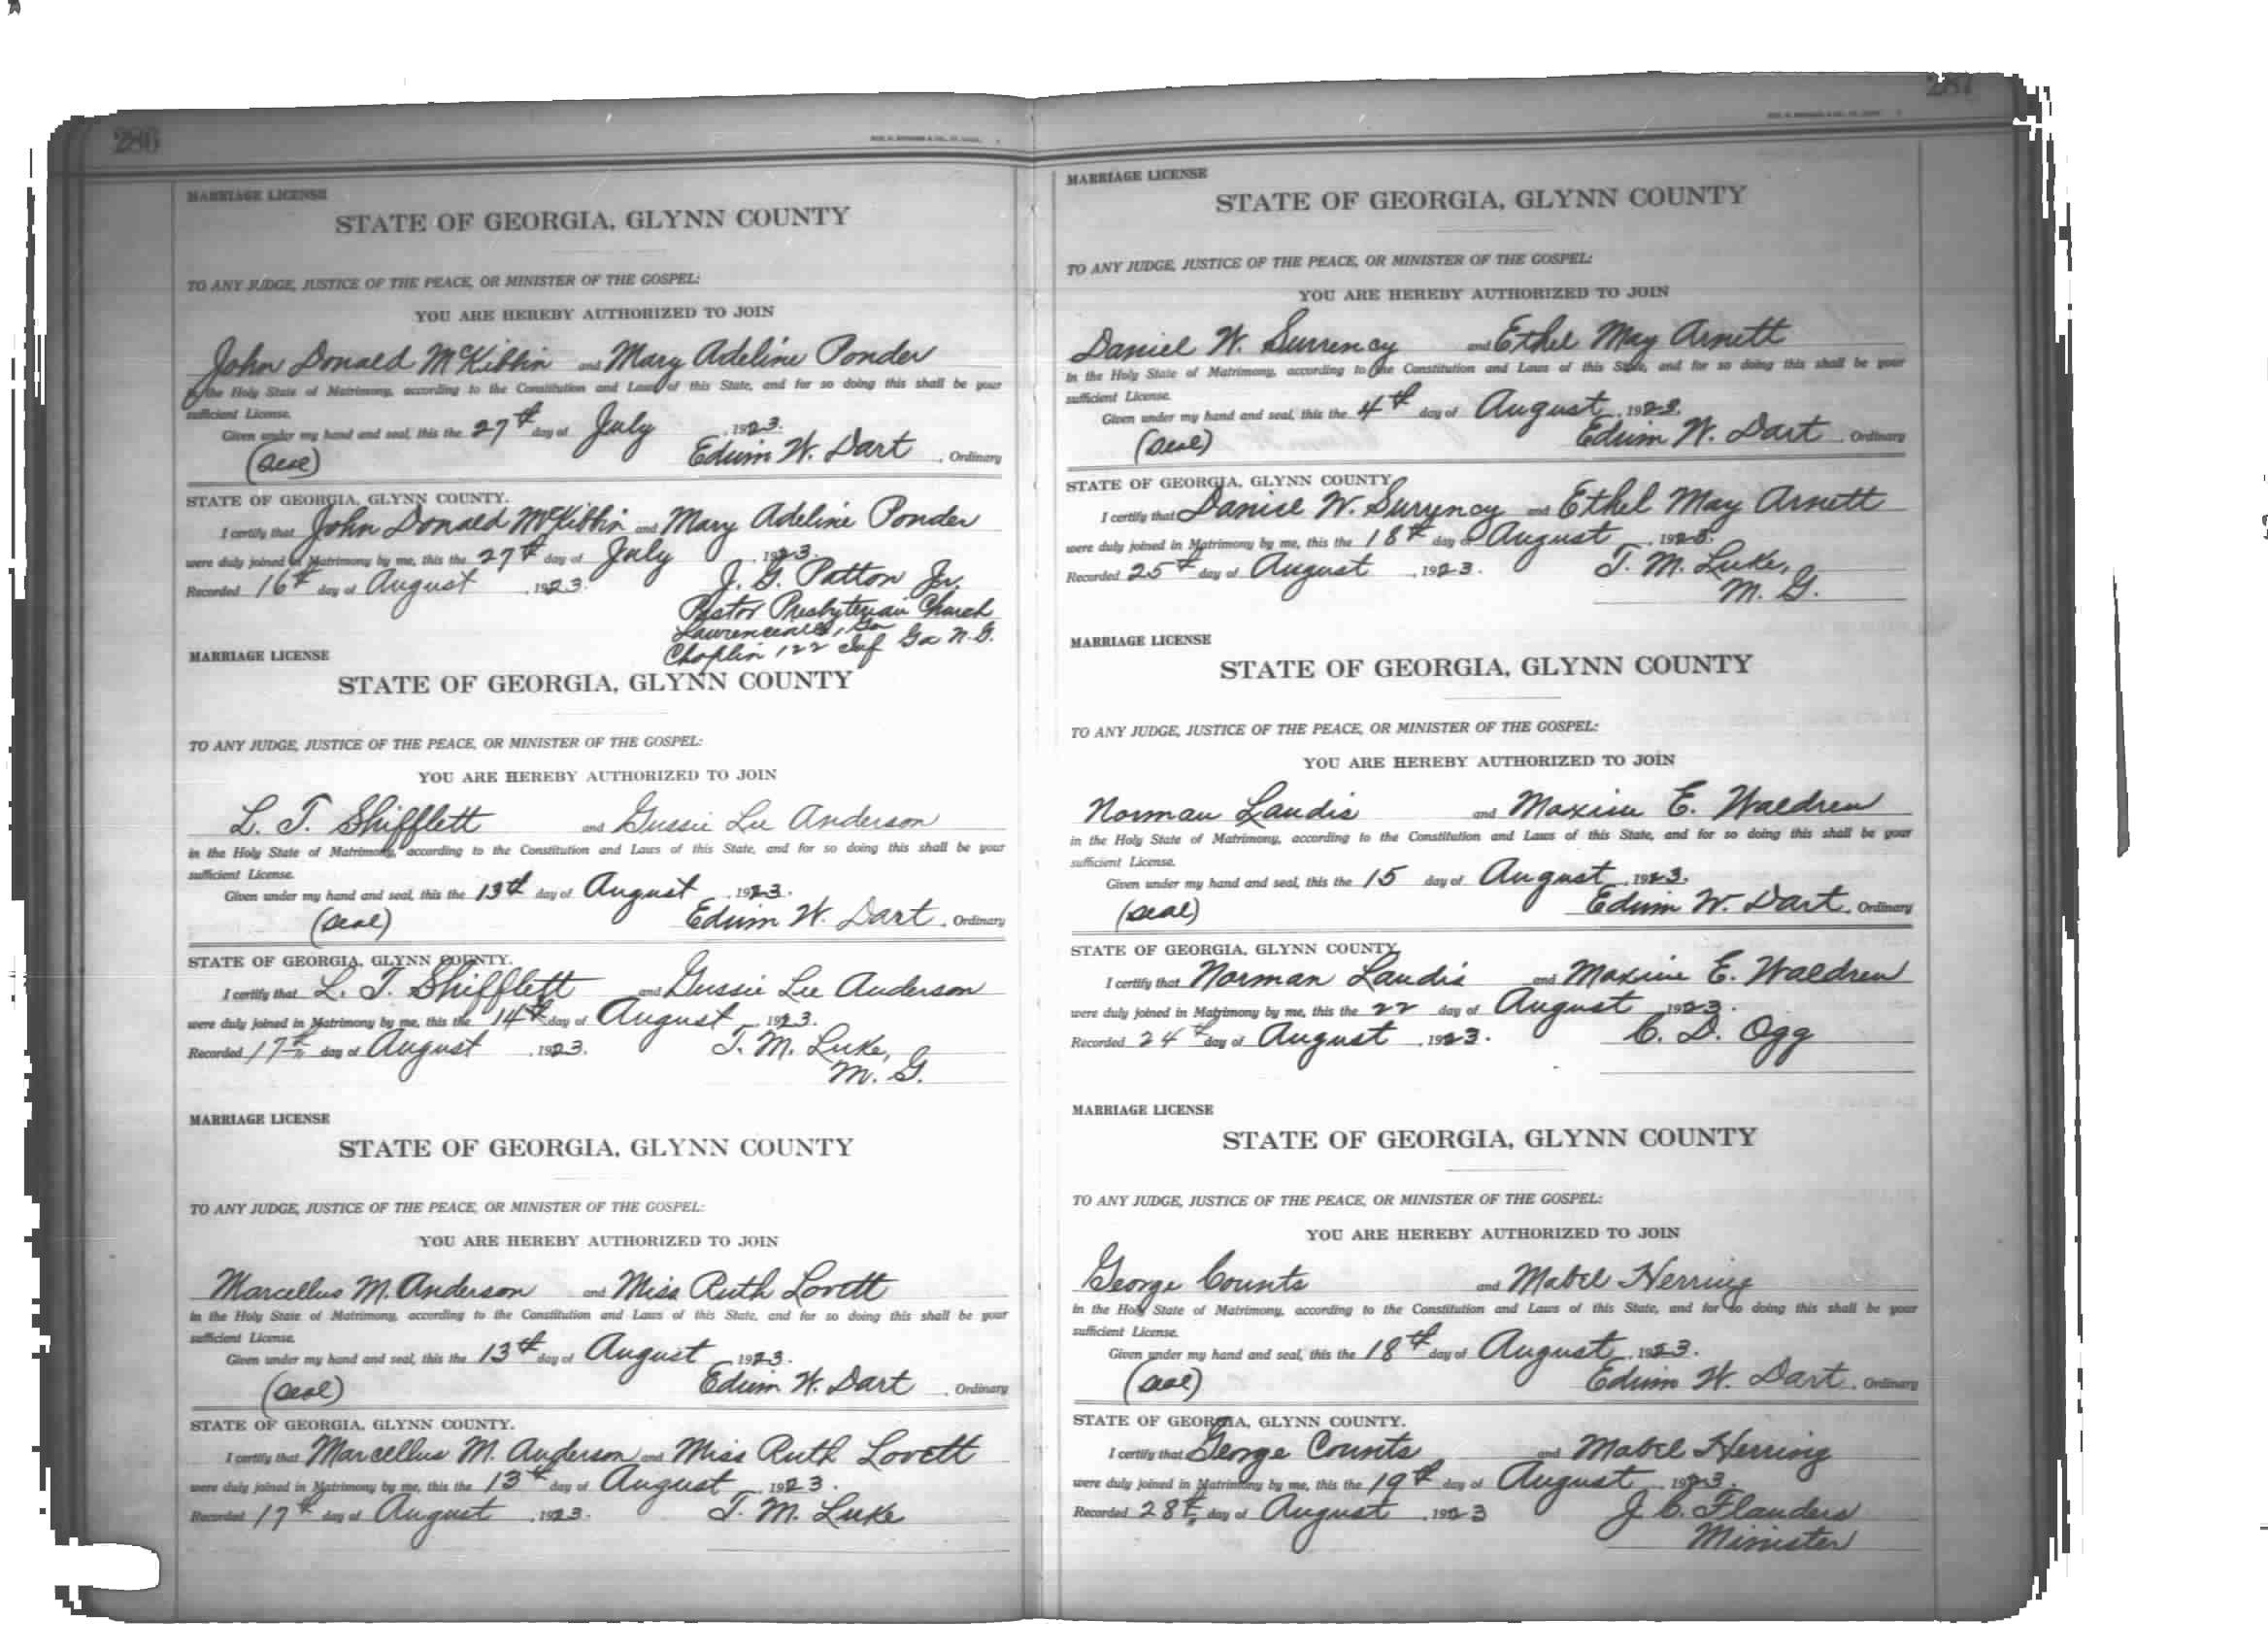 286
MARRIAGE LICENSE
STATE OF GEORGIA, GLYNN COUNTY
TO ANY JUDGE, JUSTICE OF THE PEACE, OR MINISTER OF THE GOSPEL:
YOU ARE HEREBY AUTHORIZED TO JOIN
John Donald McKibbin and Mary Adeline Ponder
in the Holy State of Matrimony, according to the Constitution and Laws of this State, and for so doing this shall be your
sufficient License.
Given under my hand and seal, this the 27th day of July, 1923.
(Seal) Edwin W. Dart, Ordinary
STATE OF GEORGIA, GLYNN COUNTY.
I certify that John Donald McKibbin and Mary Adeline Ponder
were duly joined in Matrimony by me, this the 27th day of July, 1923.
Recorded 16th day of August, 1923. J. G. Patton Jr.
Pastor Presbyterian Church
Lawrenceville, Ga
Chaplin 122 Inf Ga N. G.
MARRIAGE LICENSE
STATE OF GEORGIA, GLYNN COUNTY
TO ANY JUDGE, JUSTICE OF THE PEACE, OR MINISTER OF THE GOSPEL:
YOU ARE HEREBY AUTHORIZED TO JOIN
L. T. Shifflett and Gussie Lee Anderson
in the Holy State of Matrimony, according to the Constitution and Laws of this State, and for so doing this shall be your
sufficient License.
Given under my hand and seal, this the 13th day of August, 1923.
(Seal) Edwin W. Dart, Ordinary
STATE OF GEORGIA, GLYNN COUNTY.
I certify that L. T. Shifflett and Gussie Lee Anderson
were duly joined in Matrimony by me, this the 14th day of August, 1923.
Recorded 17th day of August, 1923. T. M. Luke,
M. G.
MARRIAGE LICENSE
STATE OF GEORGIA, GLYNN COUNTY
TO ANY JUDGE, JUSTICE OF THE PEACE, OR MINISTER OF THE GOSPEL:
YOU ARE HEREBY AUTHORIZED TO JOIN
Marcellus M. Anderson and Miss Ruth Lovett
in the Holy State of Matrimony, according to the Constitution and Laws of this State, and for so doing this shall be your
sufficient License.
Given under my hand and seal, this the 13th day of August, 1923.
(Seal) Edwin W. Dart, Ordinary
STATE OF GEORGIA, GLYNN COUNTY.
I certify that Marcellus M. Anderson and Miss Ruth Lovett
were duly joined in Matrimony by me, this the 13th day of August, 1923.
Recorded 17th day of August, 1923. T. M. Luke
287
MARRIAGE LICENSE
STATE OF GEORGIA, GLYNN COUNTY
TO ANY JUDGE, JUSTICE OF THE PEACE, OR MINISTER OF THE GOSPEL:
YOU ARE HEREBY AUTHORIZED TO JOIN
Daniel W. Surrency and Ethel May Arnett
in the Holy State of Matrimony, according to the Constitution and Laws of this State, and for so doing this shall be your
sufficient License.
Given under my hand and seal, this the 4th day of August, 1923.
(Seal) Edwin W. Dart, Ordinary
STATE OF GEORGIA, GLYNN COUNTY.
I certify that Daniel W. Surryncy and Ethel May Arnett
were duly joined in Matrimony by me, this the 18th day of August, 1923.
Recorded 25th day of August, 1923. T. M. Luke,
M. G.
MARRIAGE LICENSE
STATE OF GEORGIA, GLYNN COUNTY
TO ANY JUDGE, JUSTICE OF THE PEACE, OR MINISTER OF THE GOSPEL:
YOU ARE HEREBY AUTHORIZED TO JOIN
Norman Landis and Maxine E. Waldren
in the Holy State of Matrimony, according to the Constitution and Laws of this State, and for so doing this shall be your
sufficient License.
Given under my hand and seal, this the 15 day of August, 1923.
(Seal) Edwin W. Dart, Ordinary
STATE OF GEORGIA, GLYNN COUNTY.
I certify that Norman Landis and Maxine E. Waldren
were duly joined in Matrimony by me, this the 22 day of August, 1923.
Recorded 24th day of August, 1923. C. D. Ogg
MARRIAGE LICENSE
STATE OF GEORGIA, GLYNN COUNTY
TO ANY JUDGE, JUSTICE OF THE PEACE, OR MINISTER OF THE GOSPEL:
YOU ARE HEREBY AUTHORIZED TO JOIN
George Counts and Mabel Herring
in the Holy State of Matrimony, according to the Constitution and Laws of this State, and for so doing this shall be your
sufficient License.
Given under my hand and seal, this the 18th day of August, 1923.
(Seal) Edwin W. Dart, Ordinary
STATE OF GEORGIA, GLYNN COUNTY.
I certify that George Counts and Mabel Herring
were duly joined in Matrimony by me, this the 19th day of August, 1923.
Recorded 28th day of August, 1923 J. C. Flanders
Minister